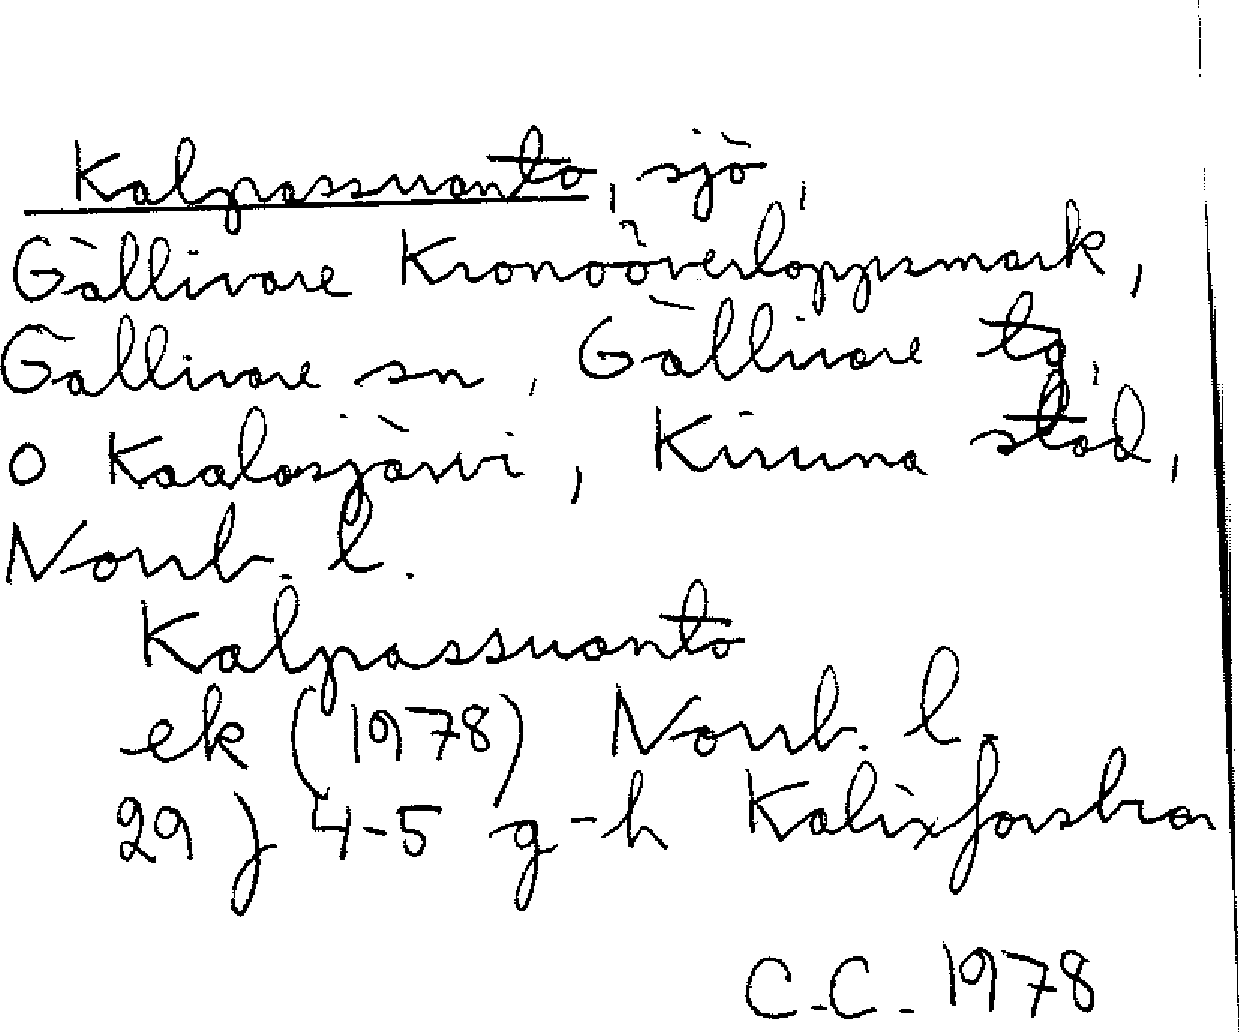 Kalpassuanto, sjö,
Gällivare Kronoöverloppsmark,
Gällivare sn, Gällivare tg,
o Kaalasjärvi, Kiruna stad,
Norrb. l.
Kalpassuanto
ek (1978) Norrb. l.
29 J 4-5 g-h Kalixforsbron
C.C. 1978